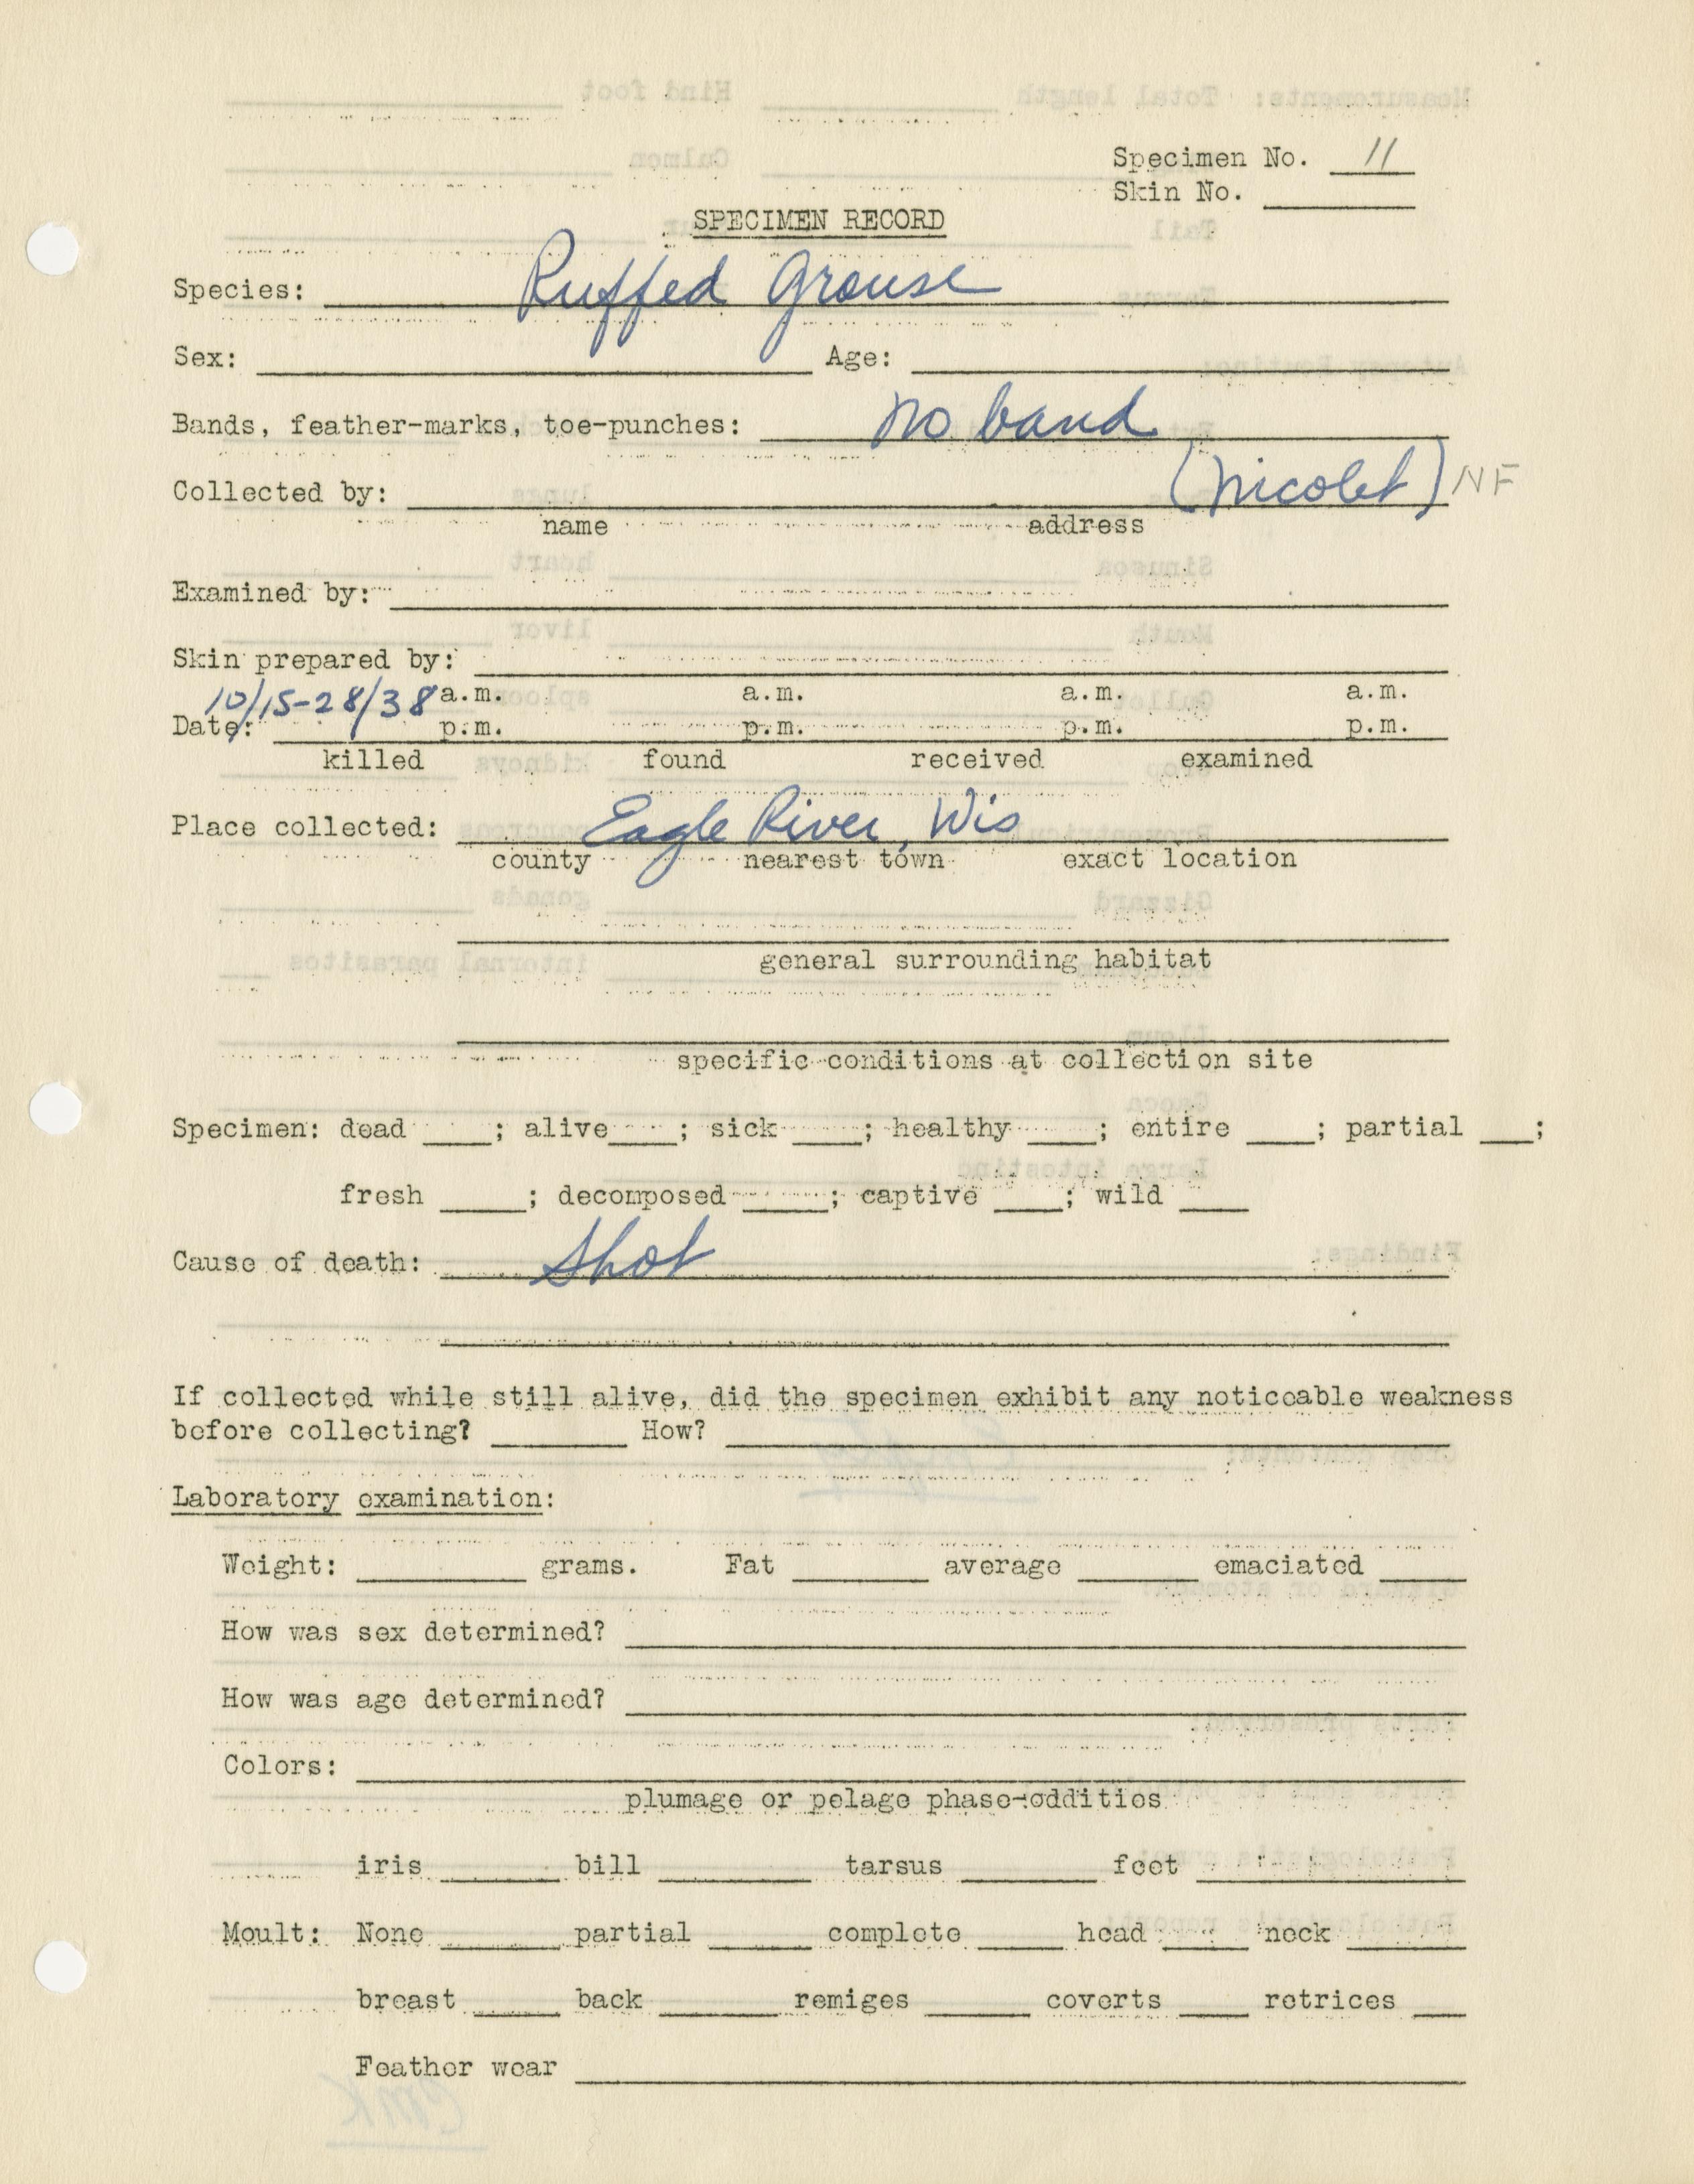 Specimen No. 11
Skin No. ____
SPECIMEN RECORD
Species: Ruffed Grouse
Sex: ____ Age: ____
Bands, feather-marks, toe-punches: no band
Collected by: ____ (Nicolet) NF
name address
Examined by: ____
Skin prepared by: ____
10/15-28/38 a.m. a.m. a.m. a.m.
Date: p.m. p.m. p.m. p.m.
killed found received examined
Place collected: Eagle River, Wis
county nearest town exact location
general surrounding habitat
specific conditions at collection site
Specimen: dead ____; alive ____; sick ____; healthy ____; entire ____; partial ____;
fresh ____; decomposed ____; captive ____; wild ____
Cause of death: Shot
If collected while still alive, did the specimen exhibit any noticeable weakness
before collecting? ____ How? ____
Laboratory examination:
Weight: ____ grams. Fat ____ average ____ emaciated ____
How was sex determined? ____
How was age determined? ____
Colors: ____
plumage or pelage phase-oddities
iris ____ bill ____ tarsus ____ feet ____
Moult: None ____ partial ____ complete ____ head ____ neck ____
breast ____ back ____ remiges ____ coverts ____ retrices ____
Feather wear ____